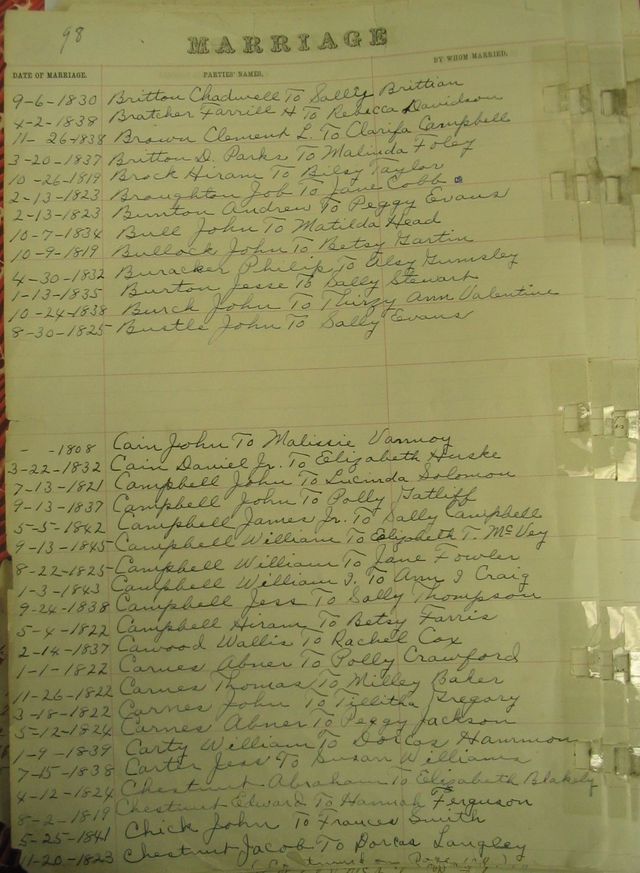 98
MARRIAGE
DATE OF MARRIAGE. PARTIES' NAMES. BY WHOM MARRIED.
9-6-1830 Britton Chadwell To Sally Brittian
4-2-1838 Bratcher Farrill H To Rebecca Davidson
11-26-1838 Brown Clement L. To Clarifa Campbell
3-20-1837 Britton D. Parks To Malinda Foley
10-26-1819 Brock Hiram To Bilsy Taylor
2-13-1823 Broughton Job To Jane Cobb
2-13-1823 Bunton Andrew To Peggy Evans
10-7-1834 Bull John To Matilda Head
10-9-1819 Bullock John To Betsy Gartin
4-30-1832 Buracker Philip To Elsy Gumsley
1-13-1835 Burton Jesse To Sally Stewart
10-24-1838 Burch John To Thirzy Ann Valentine
8-30-1825 Bustle John To Sally Evans
- -1808 Cain John To Malissie Vannoy
3-22-1832 Cain Daniel Jr. To Elizabeth Huske
7-13-1821 Campbell John To Lucinda Solomon
9-13-1837 Campbell John To Polly Gatliff
5-5-1842 Campbell James Jr. To Sally Campbell
9-13-1845 Campbell William To Elizabeth T. McVey
8-22-1825 Campbell William To Jane Fowler
1-3-1843 Campbell William I. To Ann I Craig
9-24-1838 Campbell Jess To Sally Thompson
5-4-1822 Campbell Hiram To Betsy Farris
2-14-1837 Cawood Wallis To Rachel Cox
1-1-1822 Carnes Abner To Polly Crawford
11-26-1822 Carnes Thomas To Milley Baker
3-18-1822 Carnes John To Tillitha Gregory
5-12-1824 Carnes Abner To Peggy Jackson
1-9-1839 Carty William To Dorcas Hammon
7-15-1838 Carter Jess To Susan Williams
4-12-1824 Chestnut Abraham To Elizabeth Blakely
8-2-1819 Chestnut Edward To Hannah Ferguson
5-25-1841 Chick John To Frances Smith
11-20-1823 Chestnut Jacob To Dorcas Langley
(Continued on Page